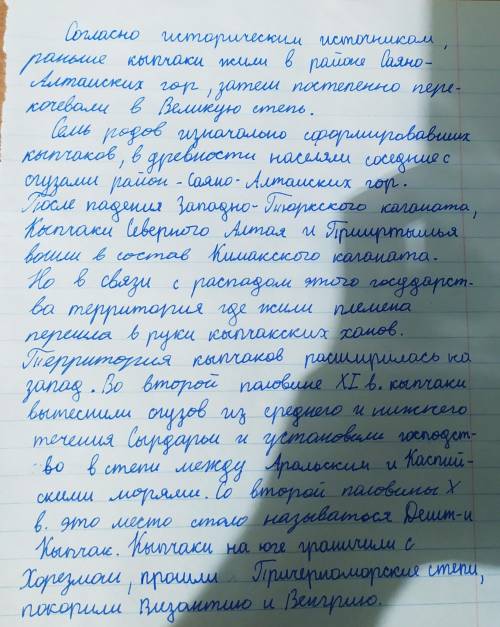 Согласно историческим источникам,
раньше кыпчаки жили в районе Саяно-
Алтайских гор, затем постепенно пере-
кочевали в Великую степь.
Семь родов изначально сформировавших
кыпчаков, в древности населяли соседние с
огузами район-Саяно-Алтайских гор.
После падения Западно-Тюркского каганата,
Кыпчаки Северного Алтая и Прииртышья
вошли в состав Кимакского каганата.
Но в связи с распадом этого государст-
ва территория где жили племена
перешла в руки кыпчакских ханов.
Территория кыпчаков расширилась на
запад. Во второй половине XI в. кыпчаки
вытеснили огузов из среднего и нижнего
течения Сырдарьи и установили господст-
во в степи между Аральским и Каспий-
скими морями. Со второй половины X
в. это место стало называться Дешт-и
Кыпчак. Кыпчаки на юге граничили с
Хорезмом, прошли Причерноморские степи,
покорили Византию и Венгрию.